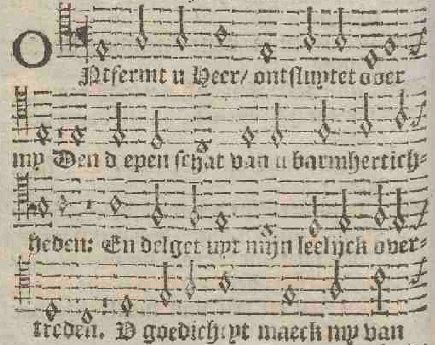 ONtfermt u Heer/ ontsluytet over
my Den diepen schat van u barmhertich-
heden: En delget uyt mijn leelijck over-
treden. V goedicheyt maeck my van